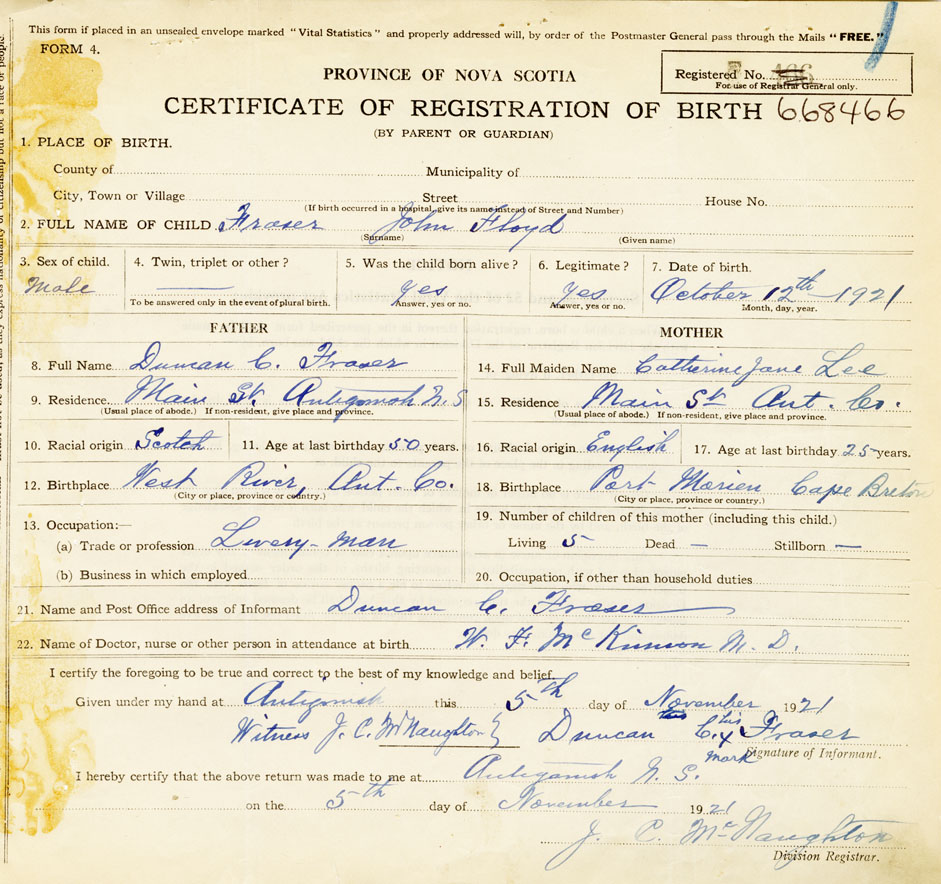 This form if placed in an unsealed envelope marked "Vital Statistics" and properly addressed will, by order of the Postmaster General pass through the Mails "FREE."
FORM 4.
PROVINCE OF NOVA SCOTIA
Registered No.
For use of Registrar General only.
CERTIFICATE OF REGISTRATION OF BIRTH 668466
(BY PARENT OR GUARDIAN)
1. PLACE OF BIRTH.
County of Municipality of
City, Town or Village Street House No.
(If birth occurred in a hospital, give its name instead of Street and Number)
2. FULL NAME OF CHILD Fraser John Floyd
(Surname) (Given name)
3. Sex of child. 4. Twin, triplet or other? 5. Was the child born alive? 6. Legitimate? 7. Date of birth.
Male — yes yes October 12th 1921
To be answered only in the event of plural birth. Answer, yes or no. Answer, yes or no. Month, day, year.
FATHER
8. Full Name Duncan C. Fraser
9. Residence Main St. Antigonish N.S
(Usual place of abode.) If non-resident, give place and province.
10. Racial origin Scotch 11. Age at last birthday 50 years.
12. Birthplace West River, Ant. Co.
(City or place, province or country.)
13. Occupation:—
(a) Trade or profession Livery-man
(b) Business in which employed
MOTHER
14. Full Maiden Name Catherine Jane Lee
15. Residence Main St Ant. Co.
(Usual place of abode.) If non-resident, give place and province.
16. Racial origin English 17. Age at last birthday 25 years.
18. Birthplace Port Morien Cape Breton
(City or place, province or country.)
19. Number of children of this mother (including this child.)
Living 5 Dead — Stillborn —
20. Occupation, if other than household duties
21. Name and Post Office address of Informant Duncan C. Fraser
22. Name of Doctor, nurse or other person in attendance at birth W. F. McKinnon M. D.
I certify the foregoing to be true and correct to the best of my knowledge and belief.
Given under my hand at Antigonish this 5th day of November 1921
Witness J. C. McNaughton } Duncan C. his x mark Fraser
Signature of Informant.
I hereby certify that the above return was made to me at Antigonish N. S.
on the 5th day of November 1921
J. C. McNaughton
Division Registrar.